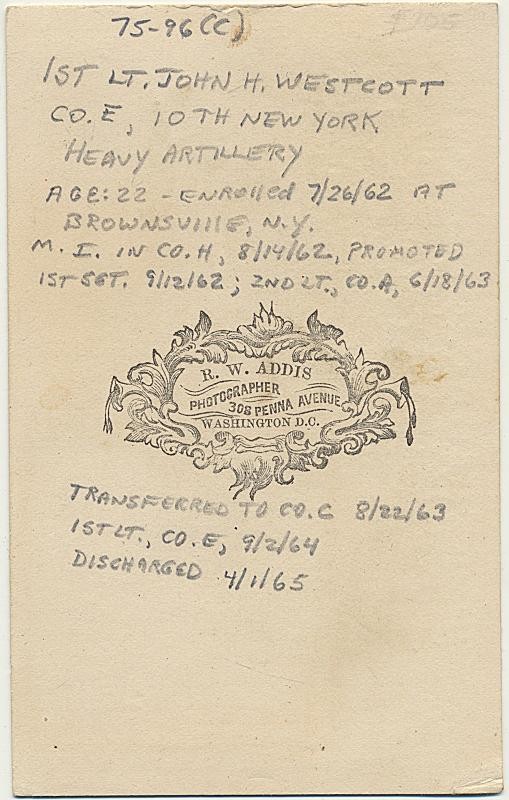 75-96(C)
1ST LT. JOHN H. WESTCOTT
CO. E, 10TH NEW YORK
HEAVY ARTILLERY
AGE: 22 - ENROLLED 7/26/62 AT
BROWNSVILLE, N.Y.
M. I. IN CO. H, 8/14/62, PROMOTED
1ST SGT. 9/12/62; 2ND LT., CO. A, 6/18/63
R. W. ADDIS
PHOTOGRAPHER
308 PENNA AVENUE
WASHINGTON D.C.
TRANSFERRED TO CO. C 8/22/63
1ST LT., CO. E, 9/2/64
DISCHARGED 4/1/65